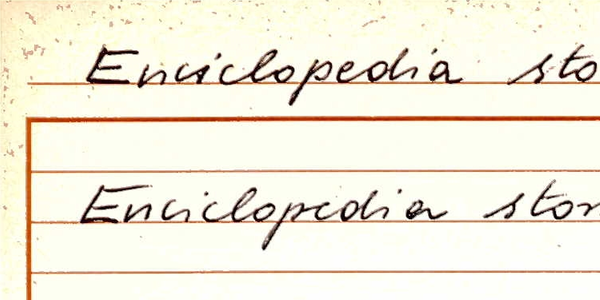 Enciclopedia sto
Enciclopedia stor